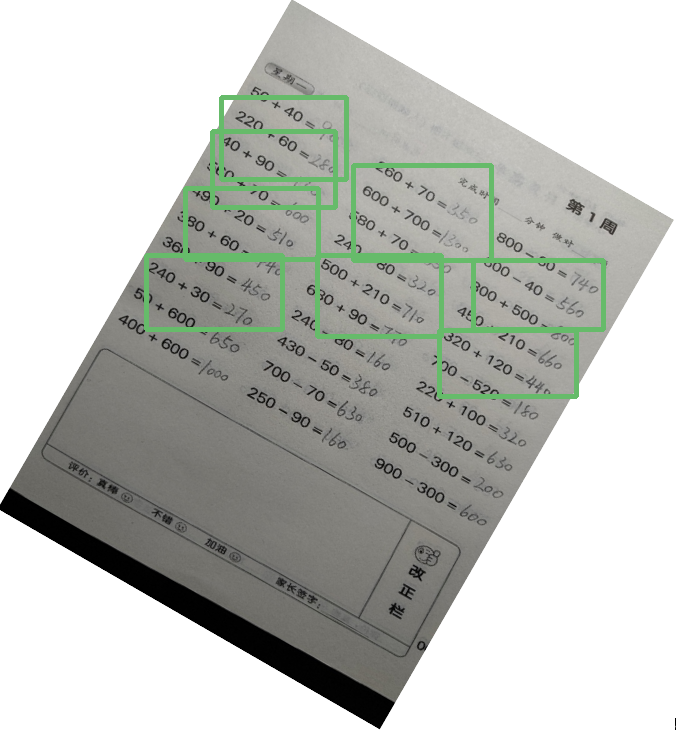 第1周
星期一
完成时间 分钟 做对
50 + 40 = 90
220 + 60 = 280
40 + 90 =
60 + 70 = 600
+ 20 = 510
380 + 60 = 440
360 + 90 = 450
240 + 30 = 270
50 + 600 = 650
400 + 600 = 1000
260 + 70 = 350
600 + 700 = 1300
680 + 70 =
240 + 80 = 320
500 + 210 = 710
680 + 90 = 770
240 - 80 = 160
430 - 50 = 380
700 - 70 = 630
250 - 90 = 160
800 - 60 = 740
600 - 40 = 560
300 + 500 = 800
450 + 210 = 660
320 + 120 = 440
700 - 520 = 180
220 + 100 = 320
510 + 120 = 630
500 - 300 = 200
900 - 300 = 600
改正栏
评价：真棒 不错 加油 家长签字：